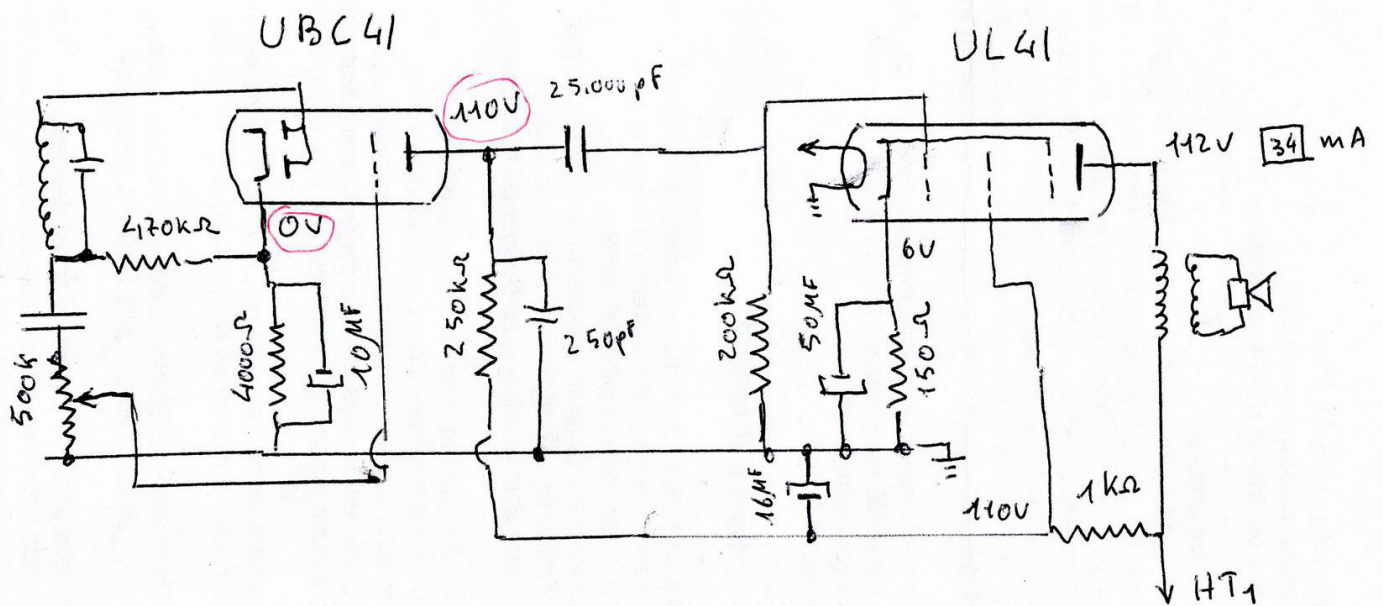 UBC41
UL41
110V
25.000pF
112V
34 mA
470kΩ
0V
6V
500k
4000Ω
10µF
250kΩ
250pF
200kΩ
50µF
150Ω
16µF
110V
1kΩ
HT1